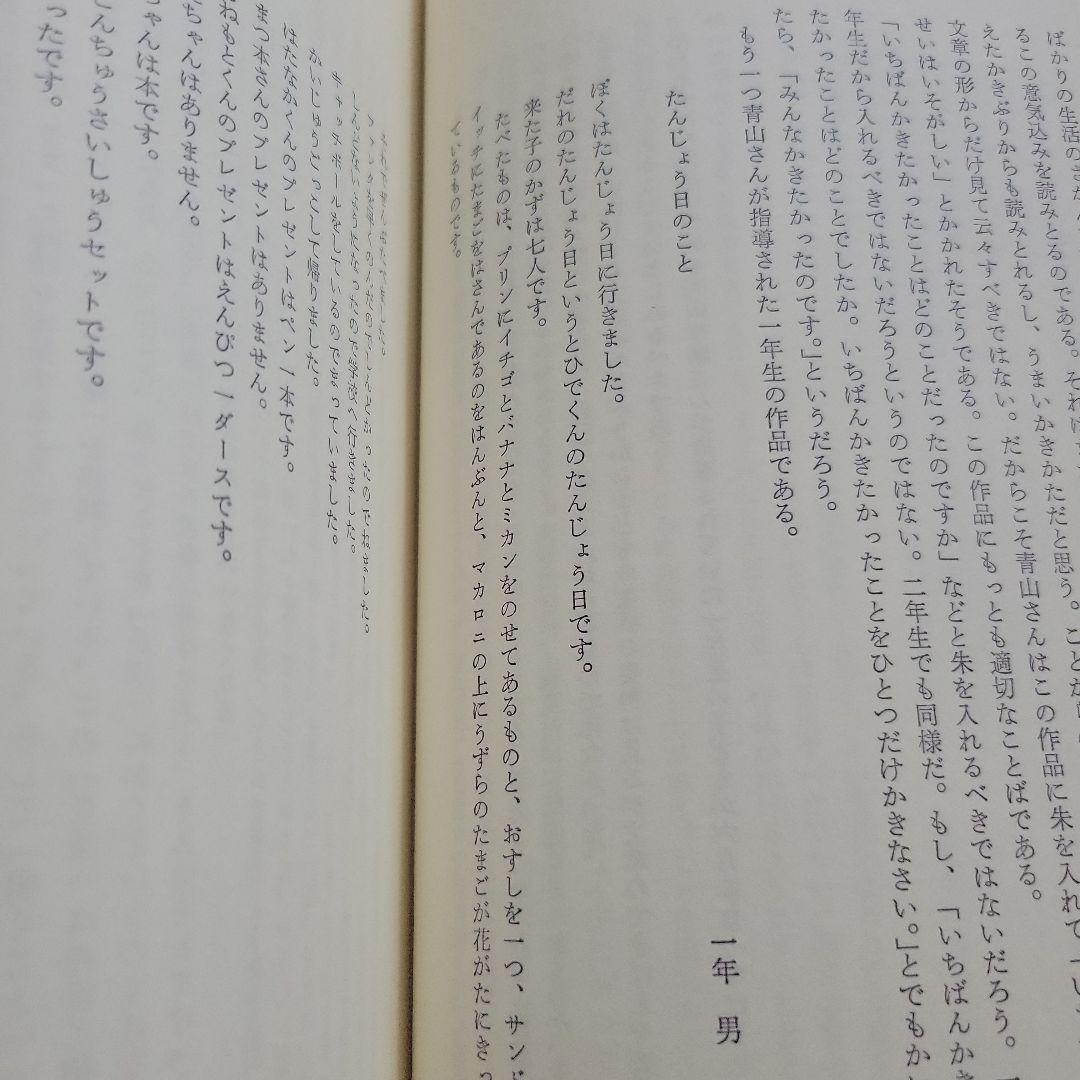 ばかりの生活のさ
るこの意気込みを読みとるのである。それ
えたかきぶりからも読みとれるし、うまいかきかただと思う。ことが
文章の形からだけ見て云々すべきではない。だからこそ青山さんはこの作品に朱を入れて「い
せいはいそがしい」とかかれたそうである。この作品にもっとも適切なことばである。
「いちばんかきたかったことはどのことだったのですか」などと朱を入れるべきではないだろう。一
年生だから入れるべきではないだろうというのではない。二年生でも同様だ。もし、「いちばんかき
たかったことはどのことでしたか。いちばんかきたかったことをひとつだけかきなさい。」とでもか
たら、「みんなかきたかったのです。」というだろう。
もう一つ青山さんが指導された一年生の作品である。
たんじょう日のこと
一年 男
ぼくはたんじょう日に行きました。
だれのたんじょう日というとひでくんのたんじょう日です。
来た子のかずは七人です。
たべたものは、プリンにイチゴとバナナとミカンをのせてあるものと、おすしを一つ、サンド
イッチにたまごをはさんであるのをはんぶんと、マカロニの上にうずらのたまごが花がたにきっ
ているものです。
キャッチボールをしているのでまっていました。
かいじゅうごっこして帰りました。
はたなかくんのプレゼントはペン一本です。
まつ本さんのプレゼントはありません。
ねるとくんのプレゼントはえんぴつ一ダースです。
ちゃんはありません。
ちゃんは本です。
こんちゅうさいしゅうセットです。
ったです。